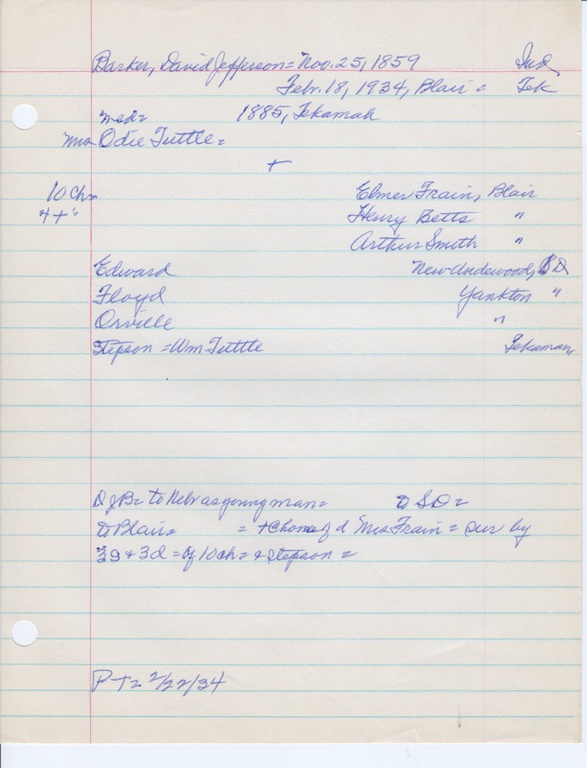 Barker, David Jefferson = Nov. 25, 1859 Ind
Febr. 18, 1934, Blair = Tek
med = 1885, Tekamah
Mrs Odie Tuttle =
+
10 Ch= Elmer Frain, Blair
4 + = Henry Betts "
Arthur Smith "
Edward New Undewood, S D
Floyd Yankton "
Orville "
Stepson = Wm Tuttle Tekamah
DJB = to Nebr as young man = to S D =
to Blair = = + @ home of d Mrs Frain = sur by
3s + 3d = of 10 ch = + stepson =
P T = 2/22/34